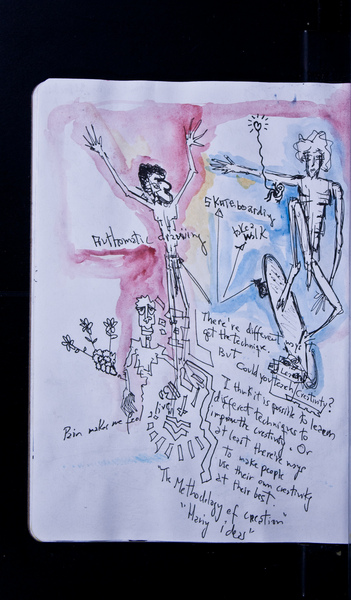 Authomatic drawing
Skateboarding
walk
There're different ways to
get the technique.
But
Could you teach creativity?
I think it is possible to learn
different techniques to
improve the creativity. Or
at least there're ways
to make people
use their own creativity
at their best.
Pain makes me feel alive
"The Methodology of creation"
"Many ideas"